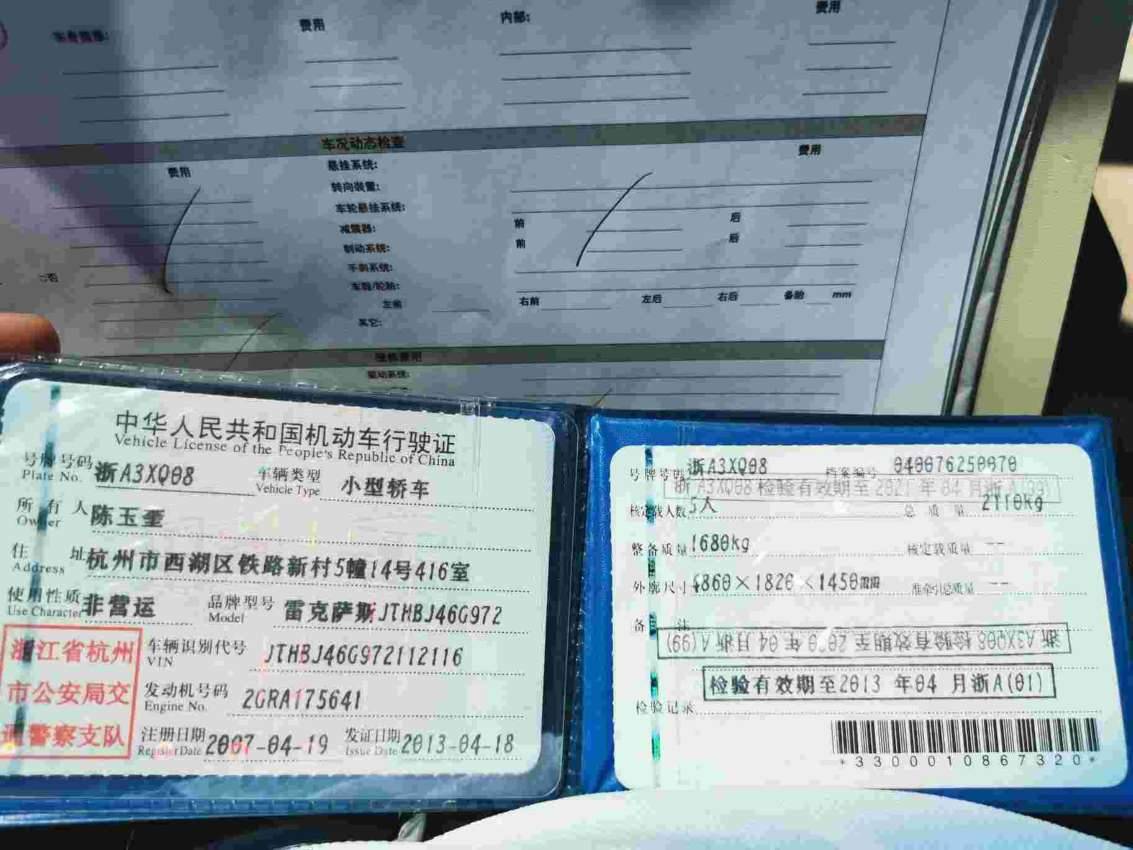 费用
内部:
费用
车况动态检查
费用
悬挂系统:
费用
转向装置:
车轮悬挂系统:
减震器:
前
后
制动系统:
前
后
手刹系统:
□否
车毂/轮胎:
左前
右前
左后
右后
备胎
mm
其它:
驱动系统:
中华人民共和国机动车行驶证
Vehicle License of the People's Republic of China
号牌号码 浙A3XQ08 车辆类型 小型轿车
Plate No. Vehicle Type
所有人 陈玉奎
Owner
住址 杭州市西湖区铁路新村5幢14号416室
Address
使用性质 非营运 品牌型号 雷克萨斯JTHBJ46G972
Use Character Model
浙江省杭州
市公安局交
通警察支队
车辆识别代号 JTHBJ46G972112116
VIN
发动机号码 2GRA175641
Engine No.
注册日期 2007-04-19 发证日期 2013-04-18
Register Date Issue Date
号牌号码 浙A3XQ08 档案编号 040076250070
浙A3XQ08检验有效期至2021年04月浙A(99)
核定载人数 5人 总质量 2110kg
整备质量 1680kg 核定载质量 --
外廓尺寸 4860×1820×1450mm 准牵引总质量 --
备注
浙A3XQ08检验有效期至2020年04月浙A(99)
检验有效期至2013年04月浙A(01)
检验记录
*3300010867320*